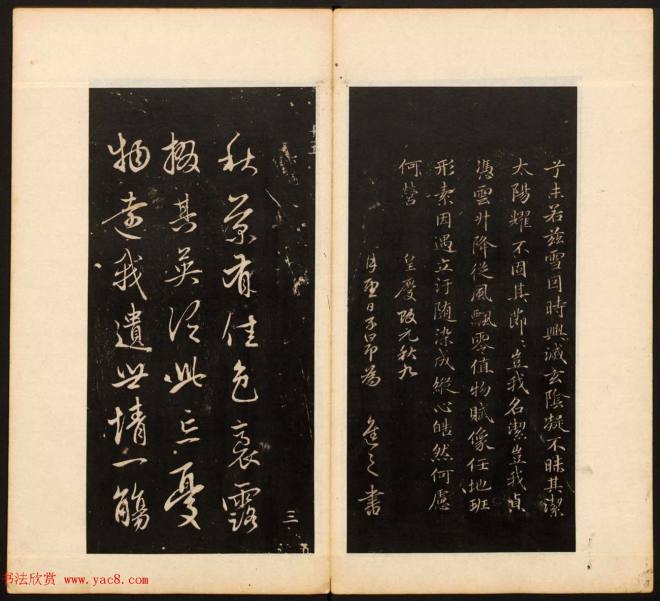 子未若茲雪因時興滅玄陰凝不昧其潔
太陽耀不固其節々豈我名潔豈我貞
憑雲升降從風飄零值物賦像任地班
形素因遇立汙隨染成縱心皓然何慮
何營 皇慶改元秋九
月望日子昂為 進之書
十五
秋菊有佳色裛露
掇其英汎此忘憂
物遠我遺世情一觴
三
五
书法欣赏 www.yac8.com